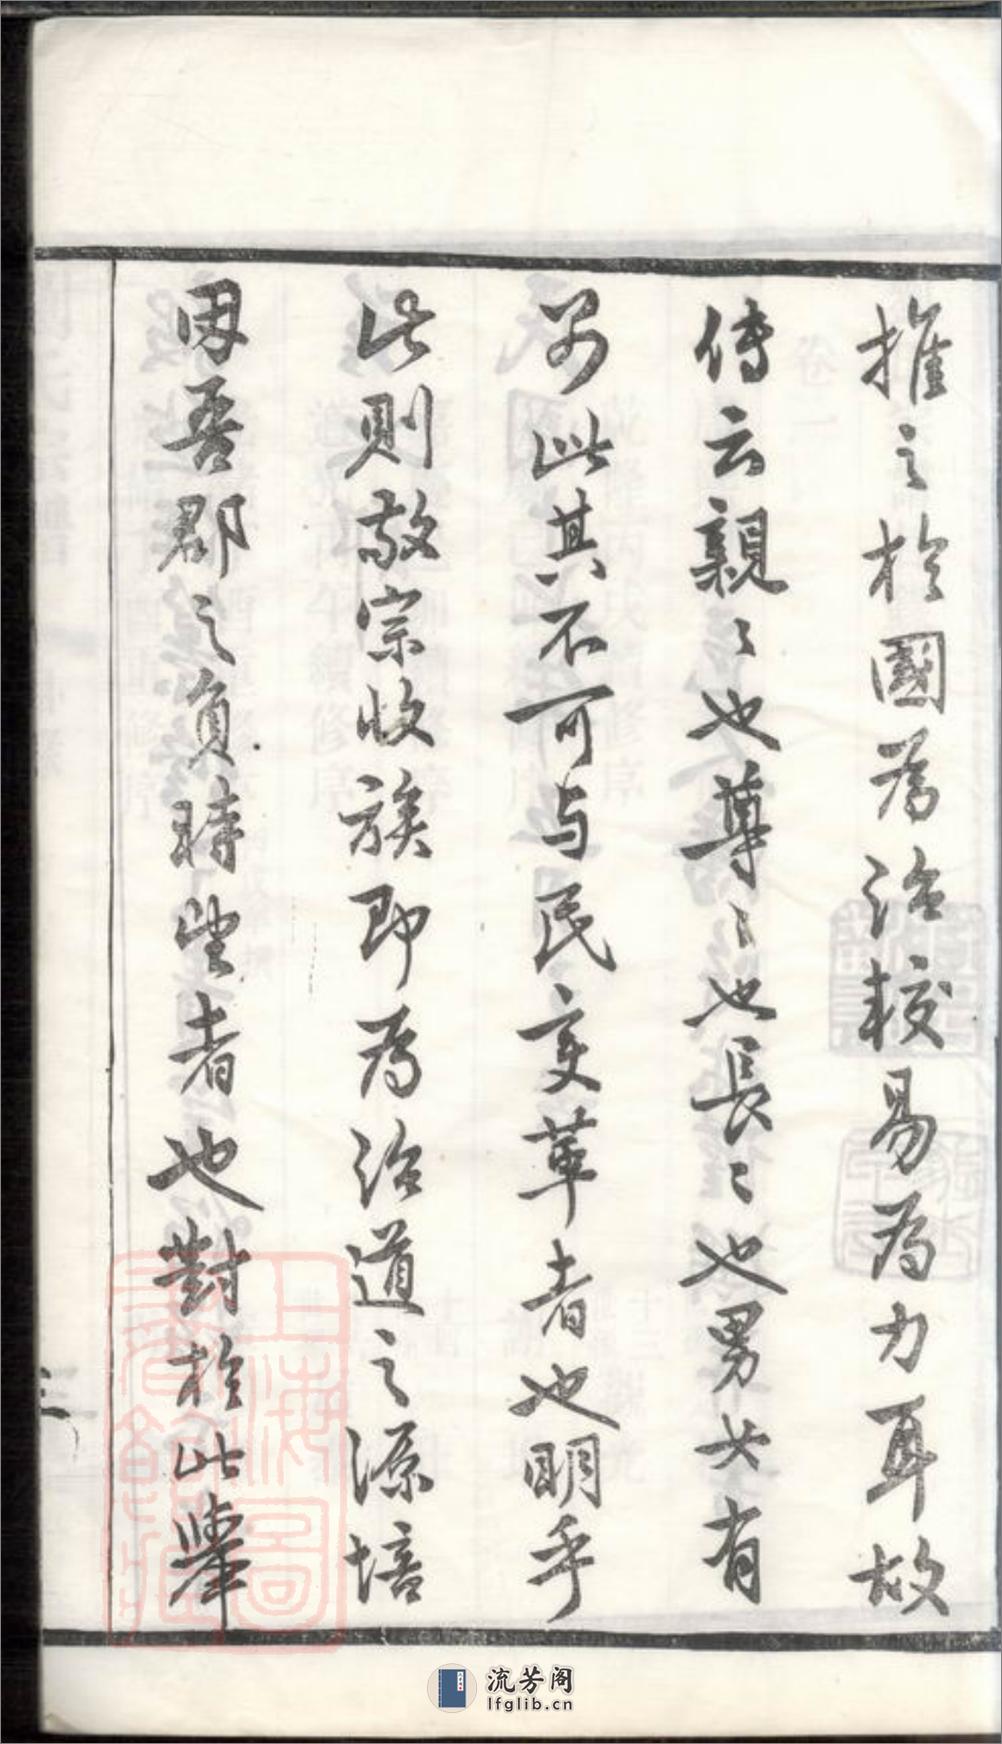 推之於國為治較易為力耳故
傳云親〻也尊〻也長〻也男女有
別此其不可与民变革者也明乎
此則敬宗收族即為治道之源培
田吾郡之負時望者也對於此舉
上海圖書館藏
流芳阁
lfglib.cn